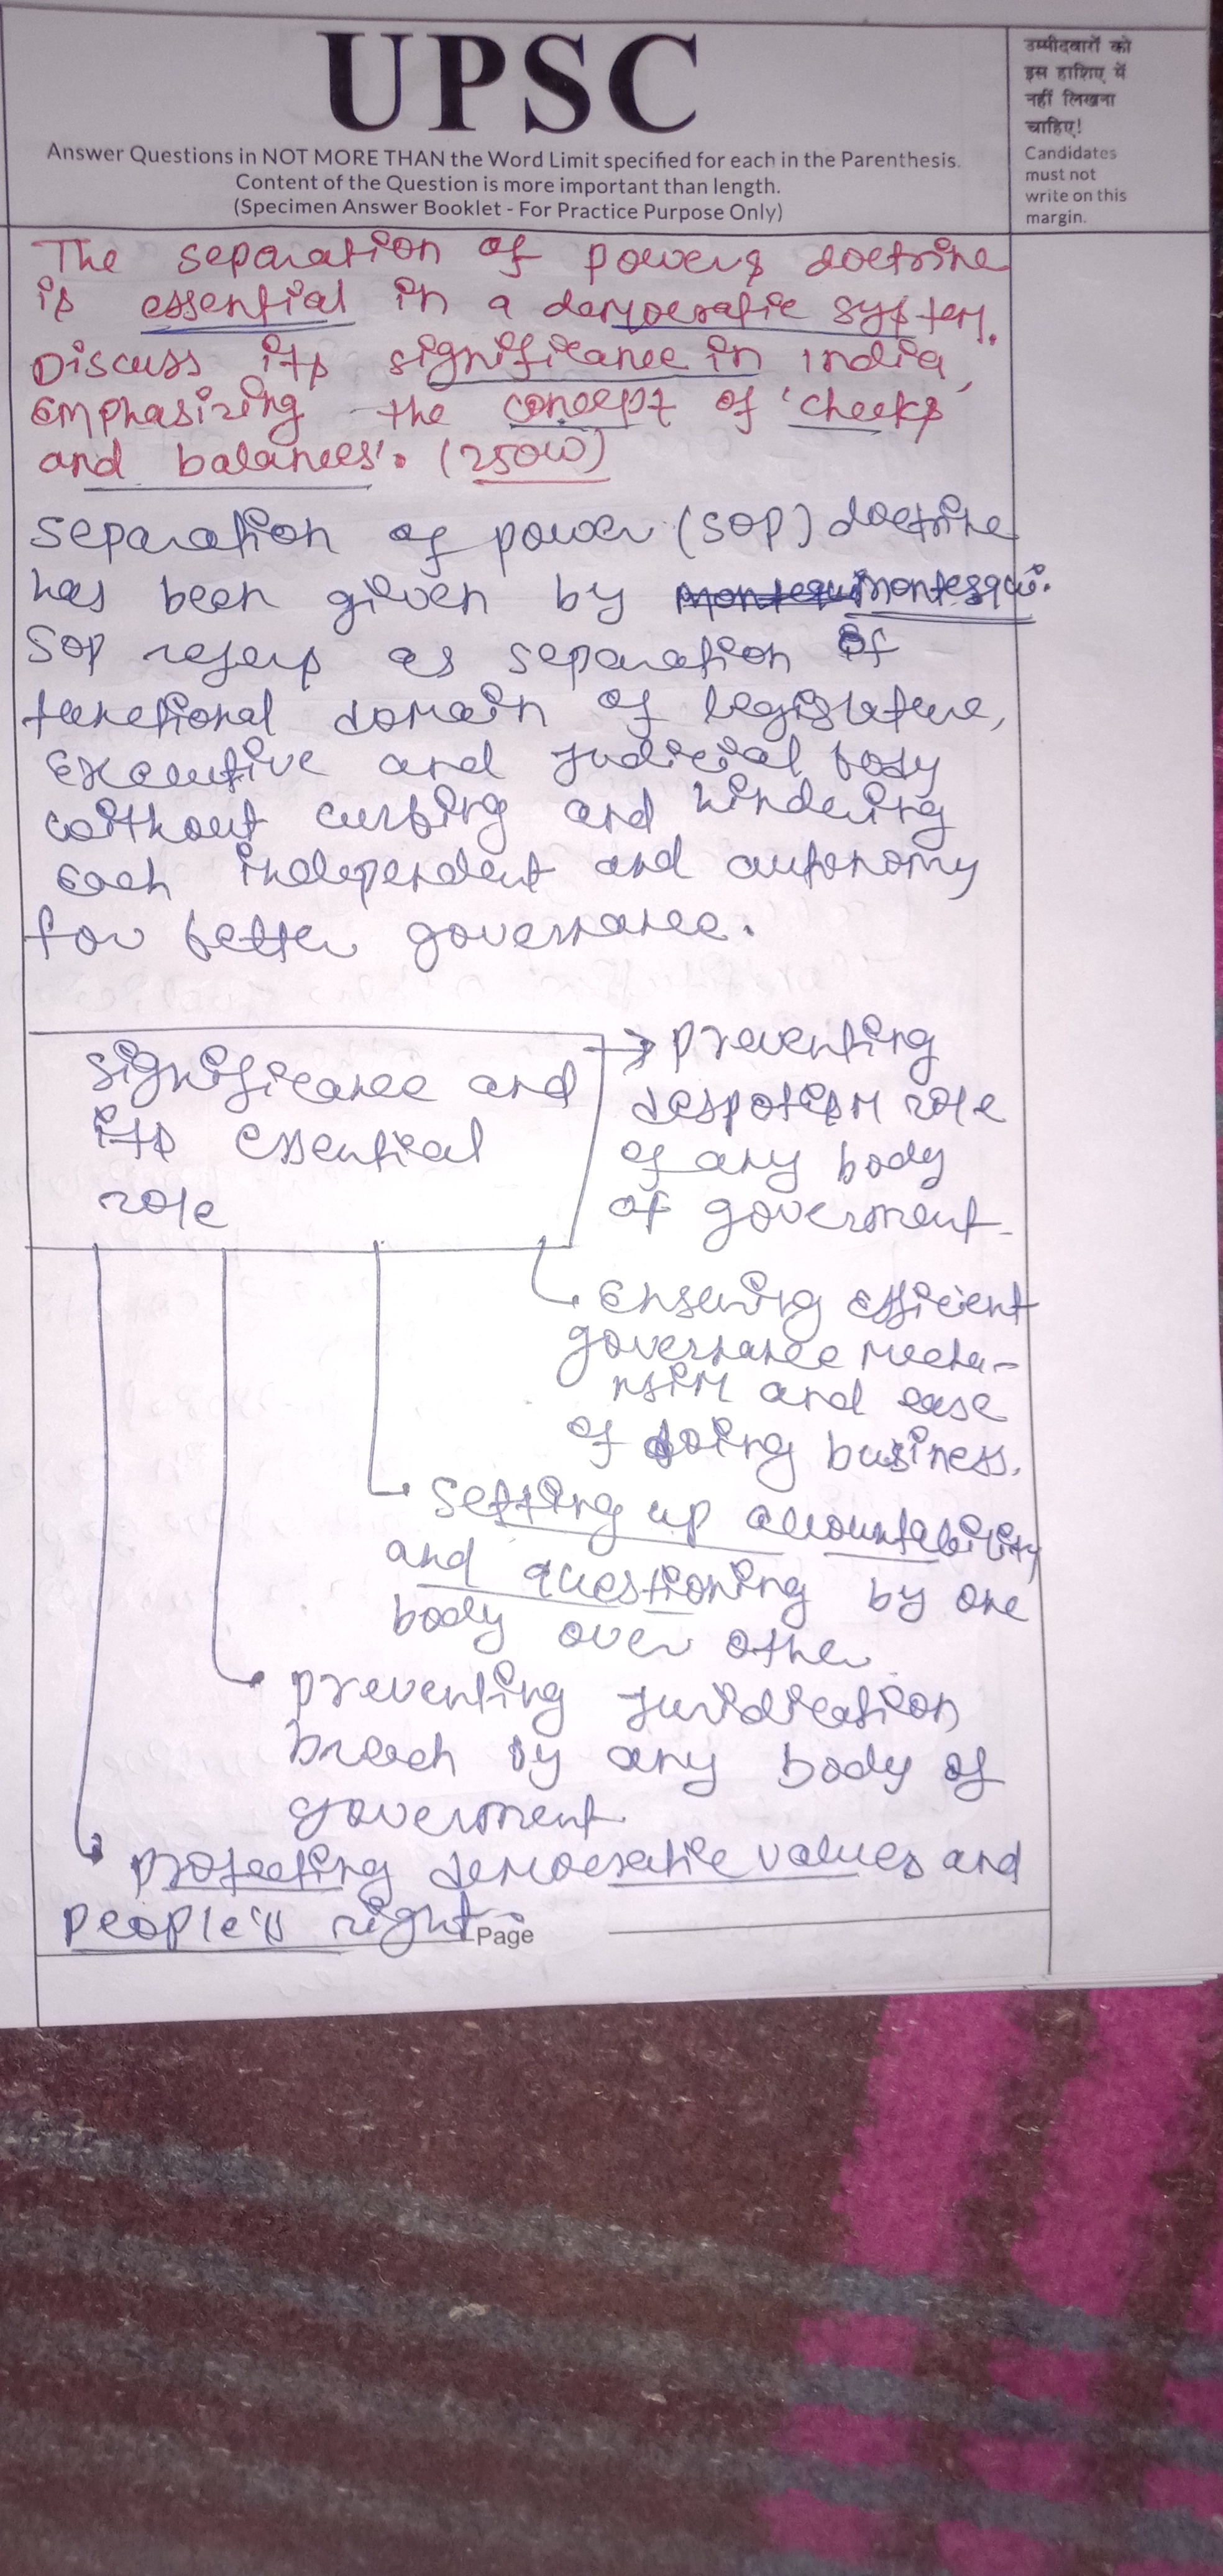 UPSC
Answer Questions in NOT MORE THAN the Word Limit specified for each in the Parenthesis.
Content of the Question is more important than length.
(Specimen Answer Booklet - For Practice Purpose Only)
उम्मीदवारों को
इस हाशिए में
नहीं लिखना
चाहिए!
Candidates
must not
write on this
margin.
The separation of powers doctrine
is essential in a democratic system.
Discuss its significance in India,
emphasizing the concept of 'checks
and balances'. (250W)
Separation of power (SOP) doctrine
has been given by Montesqui.
SOP refers as separation of
functional domain of legislature,
Executive and Judicial body
without curbing and hindering
each independent and autonomy
for better governance.
Significance and
its essential
role
→ Preventing
despotism role
of any body
of government.
Ensuring efficient
governance mecha-
nsim and ease
of doing business.
Setting up accountability
and questioning by one
body over other
Preventing Juridication
breach by any body of
government
Protecting democratic values and
People's right.
Page